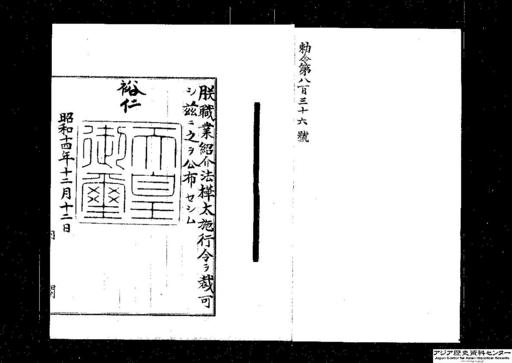 勅令第八百三十六號
朕職業紹介法樺太施行令ヲ裁可
シ茲ニ之ヲ公布セシム
裕仁
天皇御璽
昭和十四年十二月十二日
内閣
アジア歴史資料センター
Japan Center for Asian Historical Records